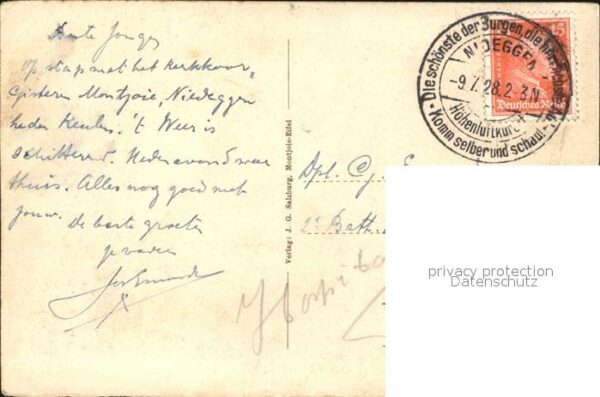 Beste Jonges
Op stap met het kerkkoor,
Gisteren Montjoie, Niedeggen
heden Keulen. 't Weer is
schitterend. Hedenavond naar
thuis. Alles nog goed met
jouw.
De beste groeten
je vader
Verlag: J. G. Salzburg, Montjoie-Eifel
Die schönste der Burgen, die
NIDEGGEN
-9.7.28.2-3N
Höhenluftkurort
Komm selber und schau!
15
Deutsches Reich
Dpl. C.
2e Batt.
privacy protection
Datenschutz